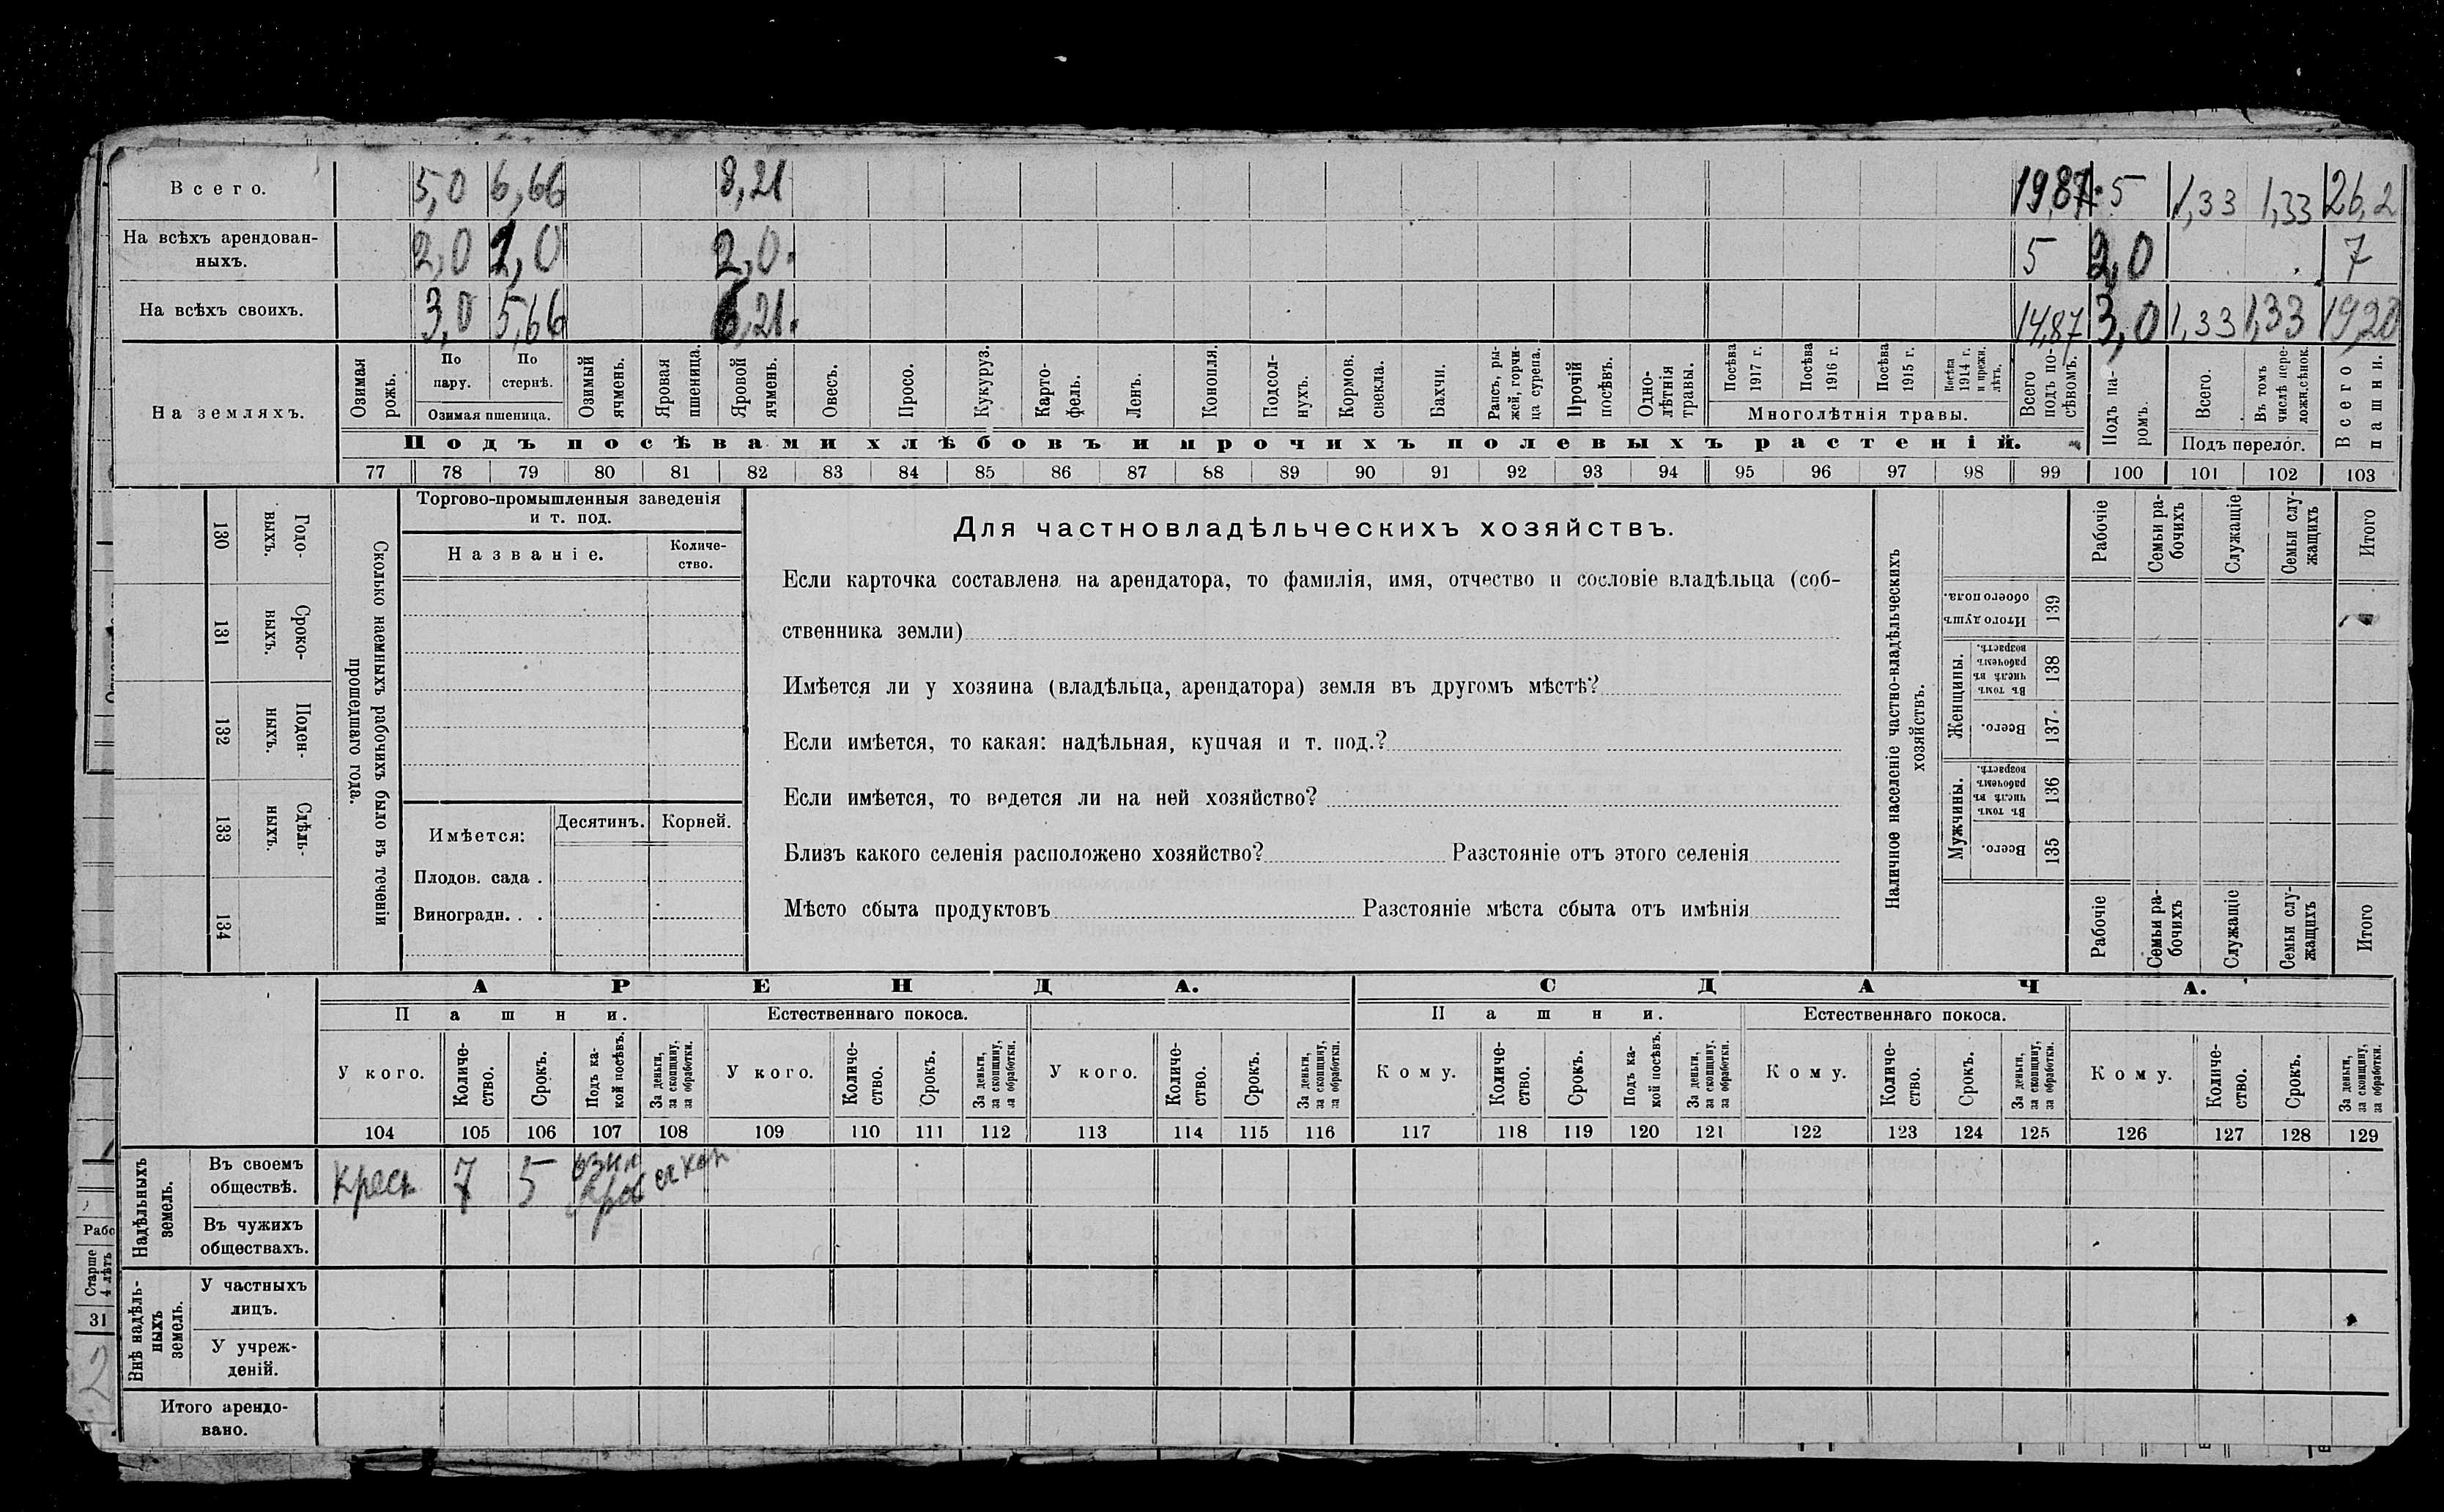 Всего. 5,0 6,66 8,21 19,87 5 1,33 1,33 26,2
На всѣхъ арендован-
ныхъ. 2,0 1,0 2,0. 5 2,0 7
На всѣхъ своихъ. 3,0 5,66 6,21. 14,87 3,0 1,33 1,33 19,20
На земляхъ.
Озимая рожь.
По пару.
По стернѣ.
Озимая пшеница.
Озимый ячмень.
Яровая пшеница.
Яровой ячмень.
Овесъ.
Просо.
Кукуруз.
Карто-
фель.
Ленъ.
Конопля.
Подсол-
нухъ.
Кормов. свекла.
Бахчи.
Рапсъ, ры-
жей, горчи-
ца сурепа.
Прочій посѣвъ.
Одно-
лѣтнія травы.
Посѣва 1917 г.
Посѣва 1916 г.
Посѣва 1915 г.
Посѣва 1914 г. и прежн. лѣтъ.
Многолѣтнія травы.
Всего подъ по-
сѣвомъ.
Подъ па-
ромъ.
Всего.
Въ томъ числѣ пере-
ложн.сѣнок.
Подъ перелог.
Всего пашни.
Подъ посѣвами хлѣбовъ и прочихъ полевыхъ растеній.
77 78 79 80 81 82 83 84 85 86 87 88 89 90 91 92 93 94 95 96 97 98 99 100 101 102 103
130
Годо-
выхъ.
131
Сроко-
выхъ.
132
Поден-
ныхъ.
133
Сдѣль-
ныхъ.
134
Сколько наемныхъ рабочихъ было въ теченіи
прошедшаго года.
Торгово-промышленныя заведенія
и т. под.
Названіе.
Количе-
ство.
Имѣется:
Десятинъ. Корней.
Плодов. сада .
Виноградн. . .
Для частновладѣльческихъ хозяйствъ.
Если карточка составлена на арендатора, то фамилія, имя, отчество и сословіе владѣльца (соб-
ственника земли)
Имѣется ли у хозяина (владѣльца, арендатора) земля въ другомъ мѣстѣ?
Если имѣется, то какая: надѣльная, купчая и т. под.?
Если имѣется, то ведется ли на ней хозяйство?
Близъ какого селенія расположено хозяйство? Разстояніе отъ этого селенія
Мѣсто сбыта продуктовъ Разстояніе мѣста сбыта отъ имѣнія
Наличное населеніе частно-владѣльческихъ
хозяйствъ.
Рабочіе
Семьи ра-
бочихъ
Служащіе
Семьи слу-
жащихъ
Итого
Итого душъ
обоего пола.
139
Женщины.
Въ томъ числѣ въ рабочемъ возрастѣ.
138
Всего.
137.
Мужчины.
Въ томъ числѣ въ рабочемъ возрастѣ.
136
Всего.
135
Рабочіе
Семьи ра-
бочихъ
Служащіе
Семьи слу-
жащихъ
Итого
АРЕНДА. СДАЧА.
Пашни. Естественнаго покоса. Пашни. Естественнаго покоса.
У кого.
Количе-
ство.
Срокъ.
Подъ ка-
кой посѣвъ.
За деньги, за скопщину, за обработки.
У кого.
Количе-
ство.
Срокъ.
За деньги, за скопщину, за обработки.
У кого.
Количе-
ство.
Срокъ.
За деньги, за скопщину, за обработки.
Кому.
Количе-
ство.
Срокъ.
Подъ ка-
кой посѣвъ.
За деньги, за скопщину, за обработки.
Кому.
Количе-
ство.
Срокъ.
За деньги, за скопщину, за обработки.
Кому.
Количе-
ство.
Срокъ.
За деньги, за скопщину, за обработки.
104 105 106 107 108 109 110 111 112 113 114 115 116 117 118 119 120 121 122 123 124 125 126 127 128 129
Надѣльныхъ
земель.
Въ своемъ
обществѣ. крест 7 5
Въ чужихъ
обществахъ.
Внѣ надѣль-
ныхъ
земель.
У частныхъ
лицъ.
У учреж-
деній.
Итого арендо-
вано.
Рабо
Старше
4 лѣтъ
31
2